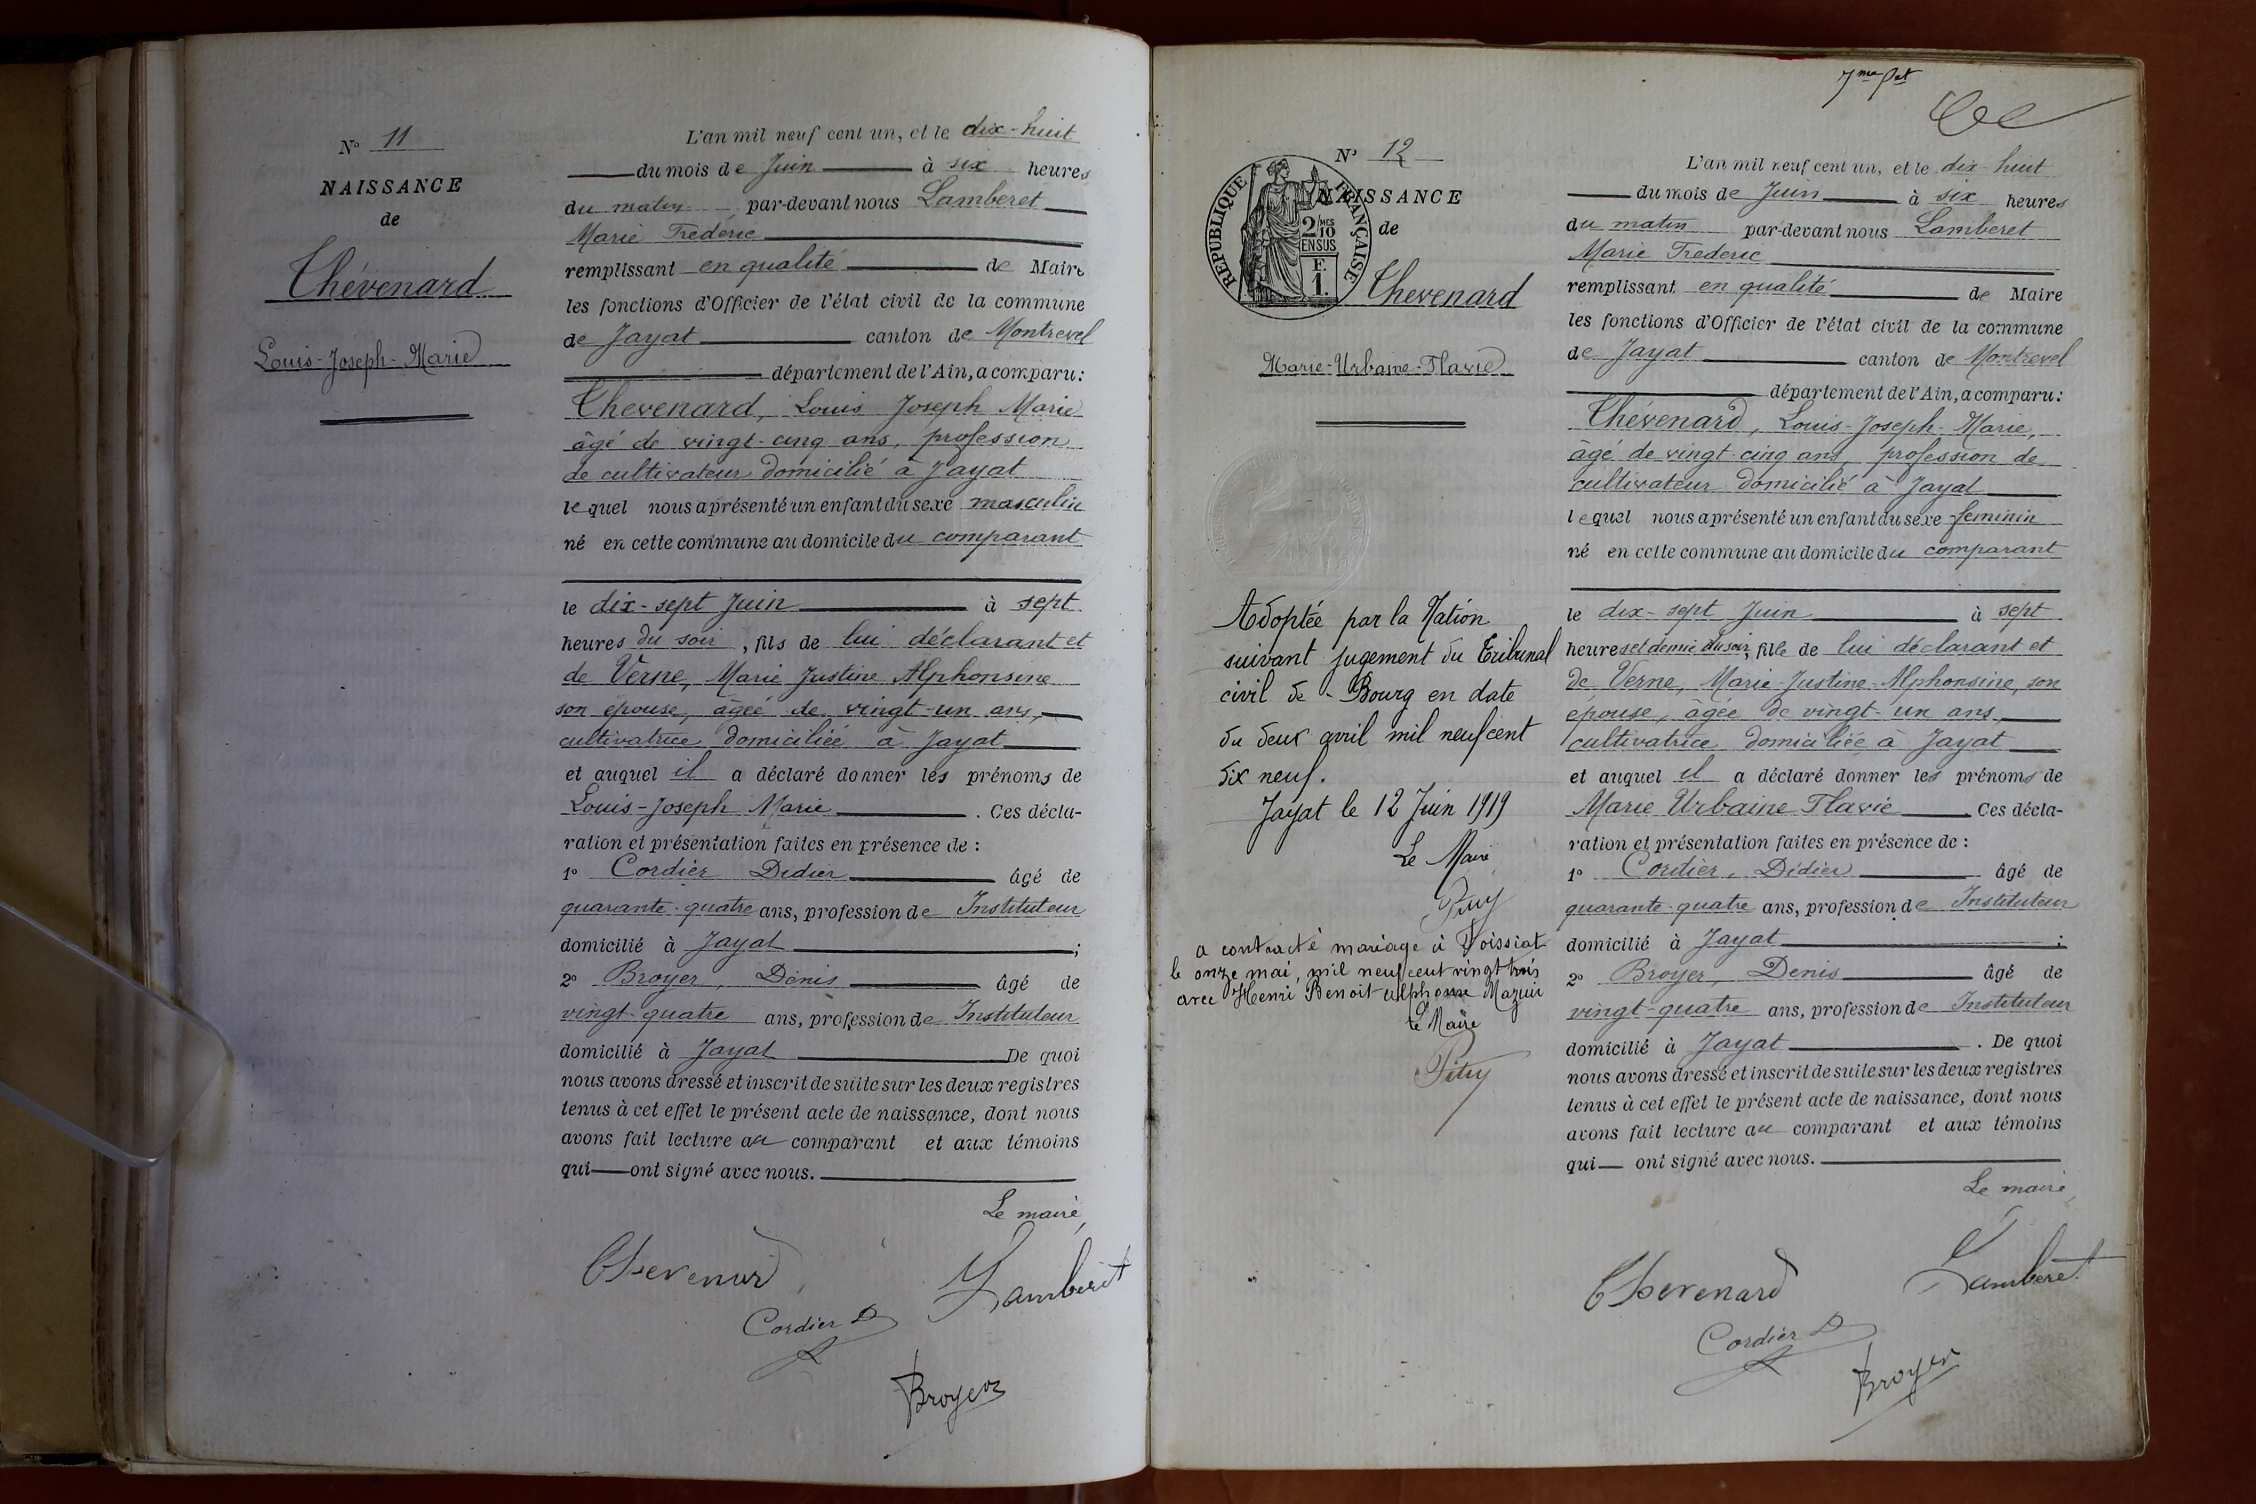 N° 11
NAISSANCE
de
Thévenard
Louis-Joseph-Marie
L'an mil neuf cent un, et le dix-huit
du mois de Juin à six heures
du matin par-devant nous Lamberet
Marie Frédéric
remplissant en qualité de Maire
les fonctions d'Officier de l'état civil de la commune
de Jayat canton de Montrevel
département de l'Ain, a comparu:
Thevenard, Louis Joseph Marie
âgé de vingt-cinq ans, profession
de cultivateur domicilié à Jayat
lequel nous a présenté un enfant du sexe masculin
né en cette commune au domicile du comparant
le dix-sept Juin à sept
heures du soir, fils de lui déclarant et
de Verne, Marie Justine Alphonsine
son épouse, âgée de vingt-un ans,
cultivatrice domiciliée à Jayat
et auquel il a déclaré donner les prénoms de
Louis-Joseph Marie. Ces décla-
ration et présentation faites en présence de :
1° Cordier Didier âgé de
quarante-quatre ans, profession de Instituteur
domicilié à Jayat ;
2° Broyer, Denis âgé de
vingt-quatre ans, profession de Instituteur
domicilié à Jayat De quoi
nous avons dressé et inscrit de suite sur les deux registres
tenus à cet effet le présent acte de naissance, dont nous
avons fait lecture au comparant et aux témoins
qui ont signé avec nous.
Le maire,
Thevenard
Lamberet
Cordier D
Broyer
7me
N° 12
RÉPUBLIQUE FRANÇAISE
2/10 MES
EN SUS
F.
1.
NAISSANCE
de
Thévenard
Marie-Urbaine-Flavie
Adoptée par la Nation
suivant jugement du Tribunal
civil de Bourg en date
du deux avril mil neuf cent
dix neuf.
Jayat le 12 Juin 1919
Le Maire
a contracté mariage à Foissiat
le onze mai, mil neuf cent vingt trois
avec Henri Benoit Alphonse Mazuir
Le Maire
L'an mil neuf cent un, et le dix-huit
du mois de Juin à six heures
du matin par-devant nous Lamberet
Marie Frederic
remplissant en qualité de Maire
les fonctions d'Officier de l'état civil de la commune
de Jayat canton de Montrevel
département de l'Ain, a comparu:
Thévenard, Louis-Joseph-Marie,
âgé de vingt cinq ans profession de
cultivateur domicilié à Jayat
lequel nous a présenté un enfant du sexe feminin
né en cette commune au domicile du comparant
le dix-sept Juin à sept
heures et demie du soir, fille de lui déclarant et
de Verne, Marie-Justine-Alphonsine, son
épouse, âgée de vingt-un ans,
cultivatrice domiciliée à Jayat
et auquel il a déclaré donner les prénoms de
Marie Urbaine Flavie. Ces décla-
ration et présentation faites en présence de :
1° Cordier, Didier âgé de
quarante-quatre ans, profession de Instituteur
domicilié à Jayat ;
2° Broyer, Denis âgé de
vingt-quatre ans, profession de Instituteur
domicilié à Jayat. De quoi
nous avons dressé et inscrit de suite sur les deux registres
tenus à cet effet le présent acte de naissance, dont nous
avons fait lecture au comparant et aux témoins
qui ont signé avec nous.
Le maire,
Thevenard
Lamberet
Cordier D
Broyer